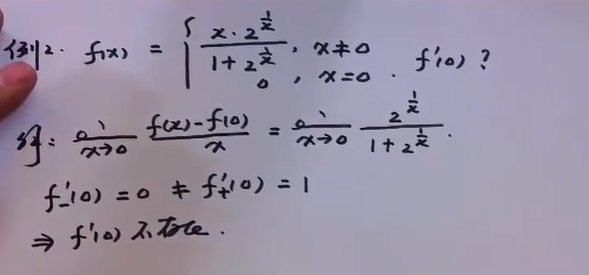 例2. f(x) = { x·2^{1/x} / (1+2^{1/x}), x≠0
0, x=0. f'(0)?
解: lim_{x→0} (f(x)-f(0))/x = lim_{x→0} 2^{1/x} / (1+2^{1/x}).
f'₋(0) = 0 ≠ f'₊(0) = 1
⇒ f'(0) 不存在.